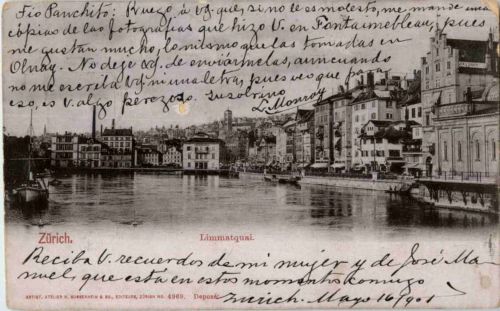 Tío Panchito: Ruego á Vd. que, si no le es molesto, me mande una
copia de las fotografias que hizo V. en Fontainebleau, pues
me gustan mucho, lo mismo que las tomadas en
Olnay. No deje Vd. de enviarmelas, aun cuando
no me escriba Vd. ni una letra, pues veo que para
eso, es V. algo perezoso. Su sobrino
L. Monroy
Zürich.
Limmatquai.
Reciba V. recuerdos de mi mujer y de José Ma-
nuel, que está en estos momentos conmigo
ARTIST. ATELIER H. GUGGENHEIM & Co., EDITEURS, ZÜRICH No. 4969. Déposé.
Zürich. Mayo 16/901